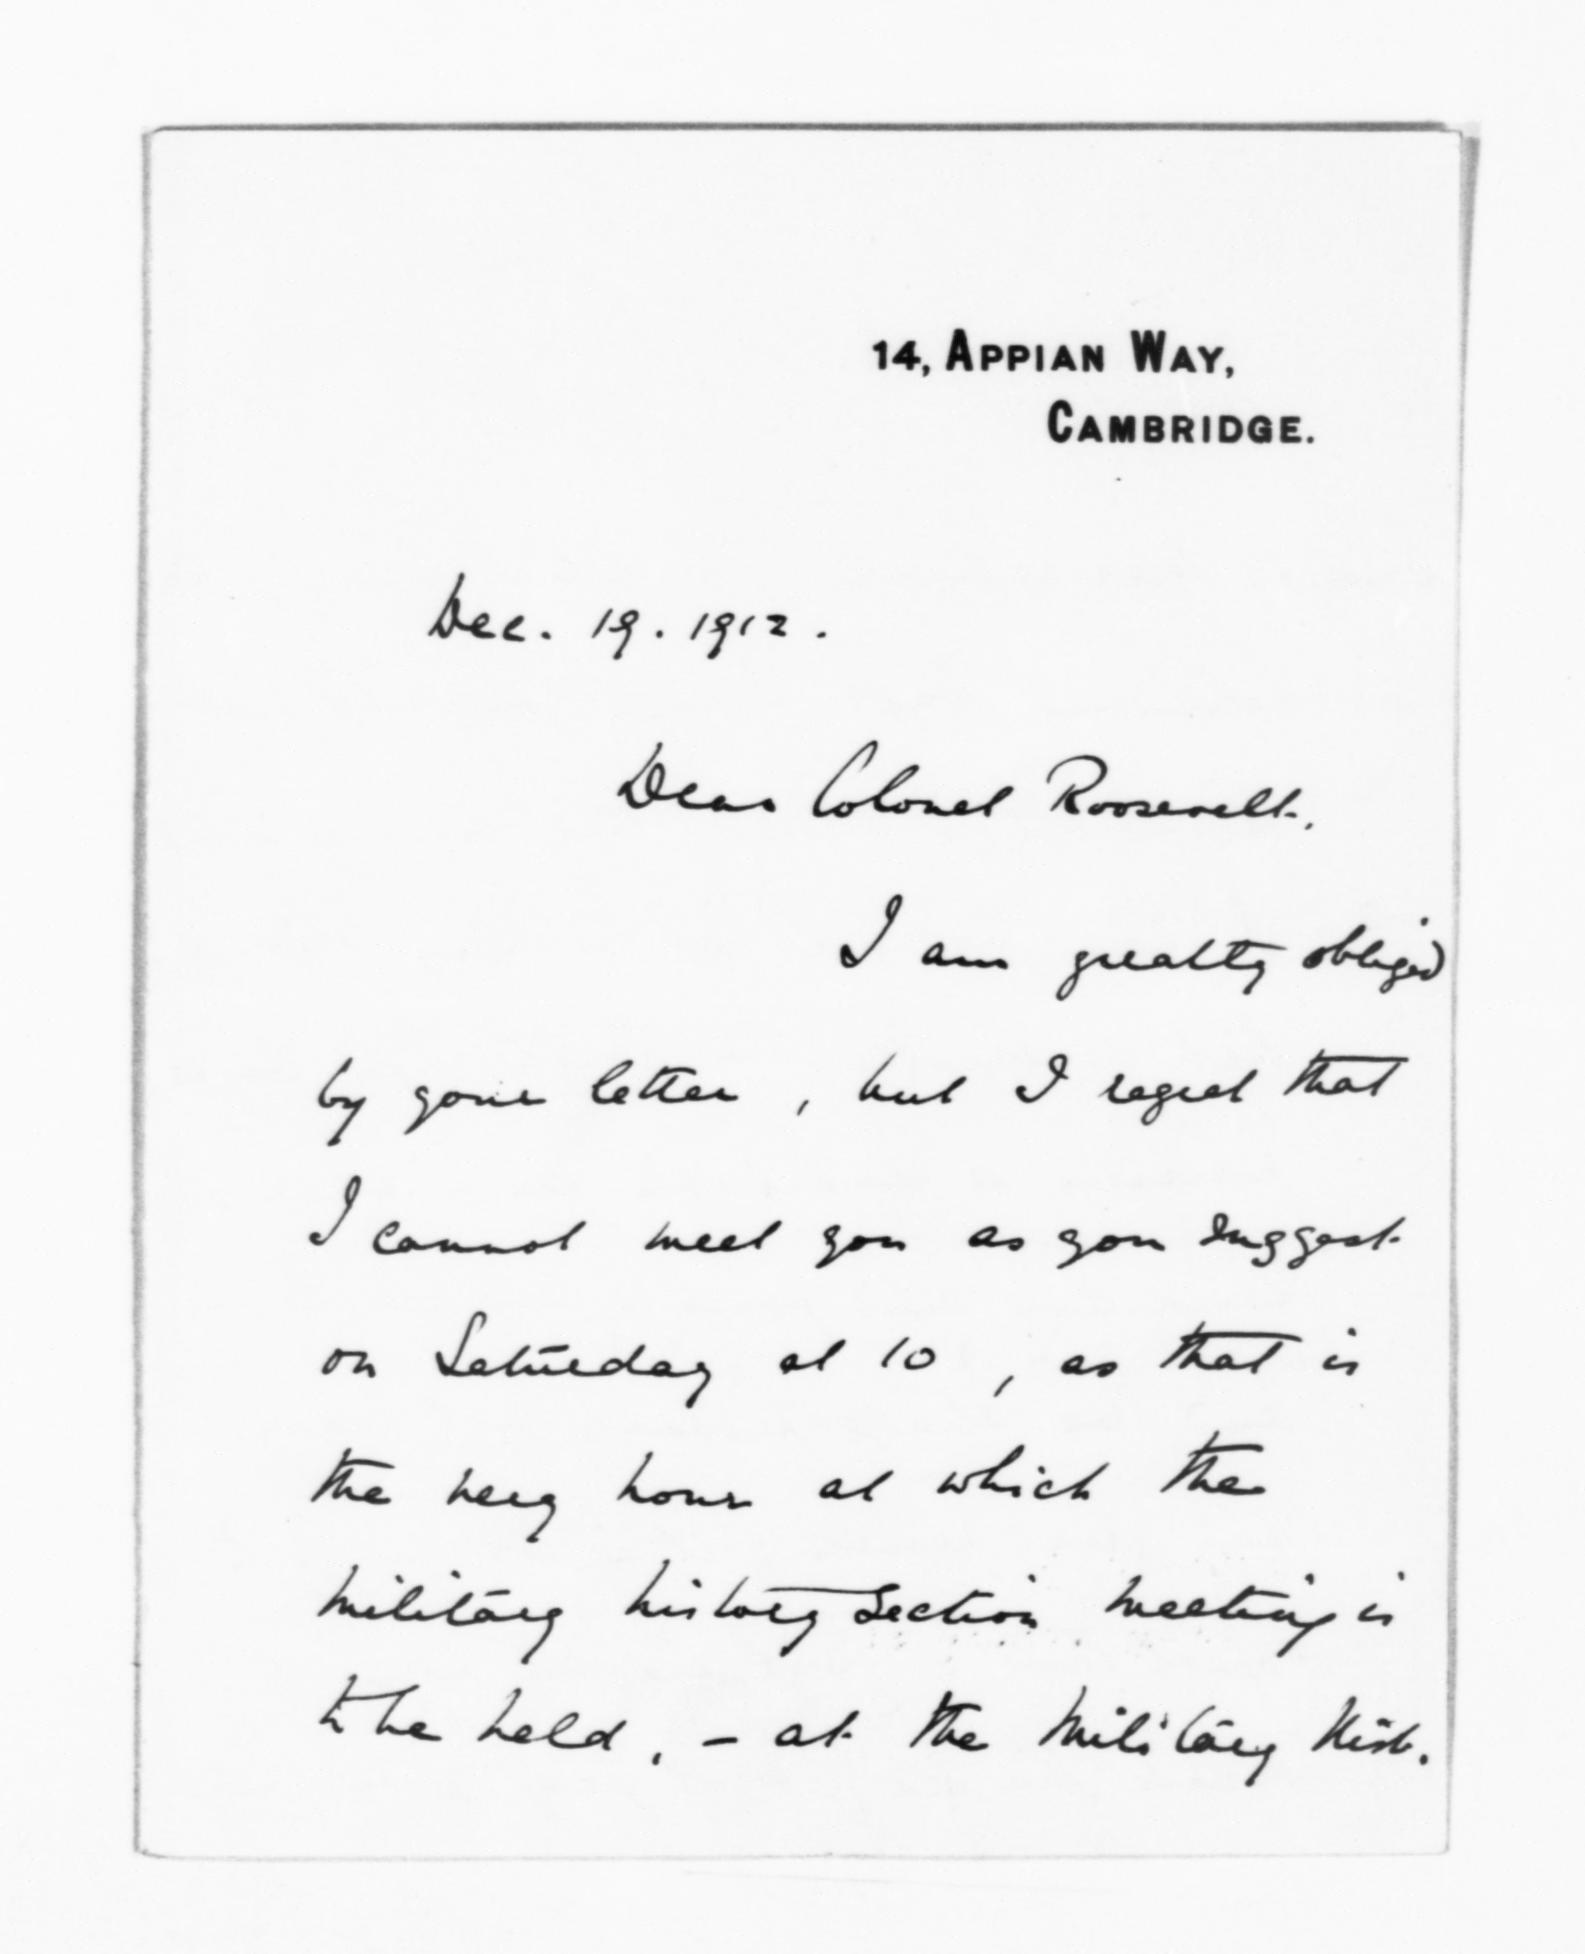 14, APPIAN WAY,
CAMBRIDGE.
Dec. 19. 1912.
Dear Colonel Roosevelt,
I am greatly obliged
by your letter, but I regret that
I cannot meet you as you suggest
on Saturday at 10, as that is
the very hour at which the
military history section meeting is
to be held, - at the Military Hist.